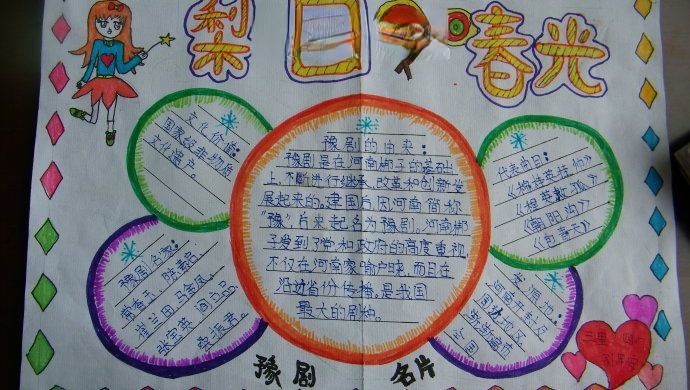 梨园春光
文化价值:
国家级非物质
文化遗产。
豫剧的由来:
豫剧是在河南梆子的基础
上,不断进行继承、改革和创新发
展起来的。建国后因河南简称
"豫"
起名为豫剧。河南梆
子受到了党和政府的高度重视,
不仅在河南家喻户晓,而且在
沿边省份传播,是我国
最大的剧种。
代表曲目:
《穆桂英挂帅》
《花木兰》
《朝阳沟》
《包青天》
豫剧名家:
常香玉、陈素真、
崔兰田、马金凤、
张宝英、阎立品、
桑振君。
发源地:
河南开封及
周边地区
全国
三里
豫剧 名片